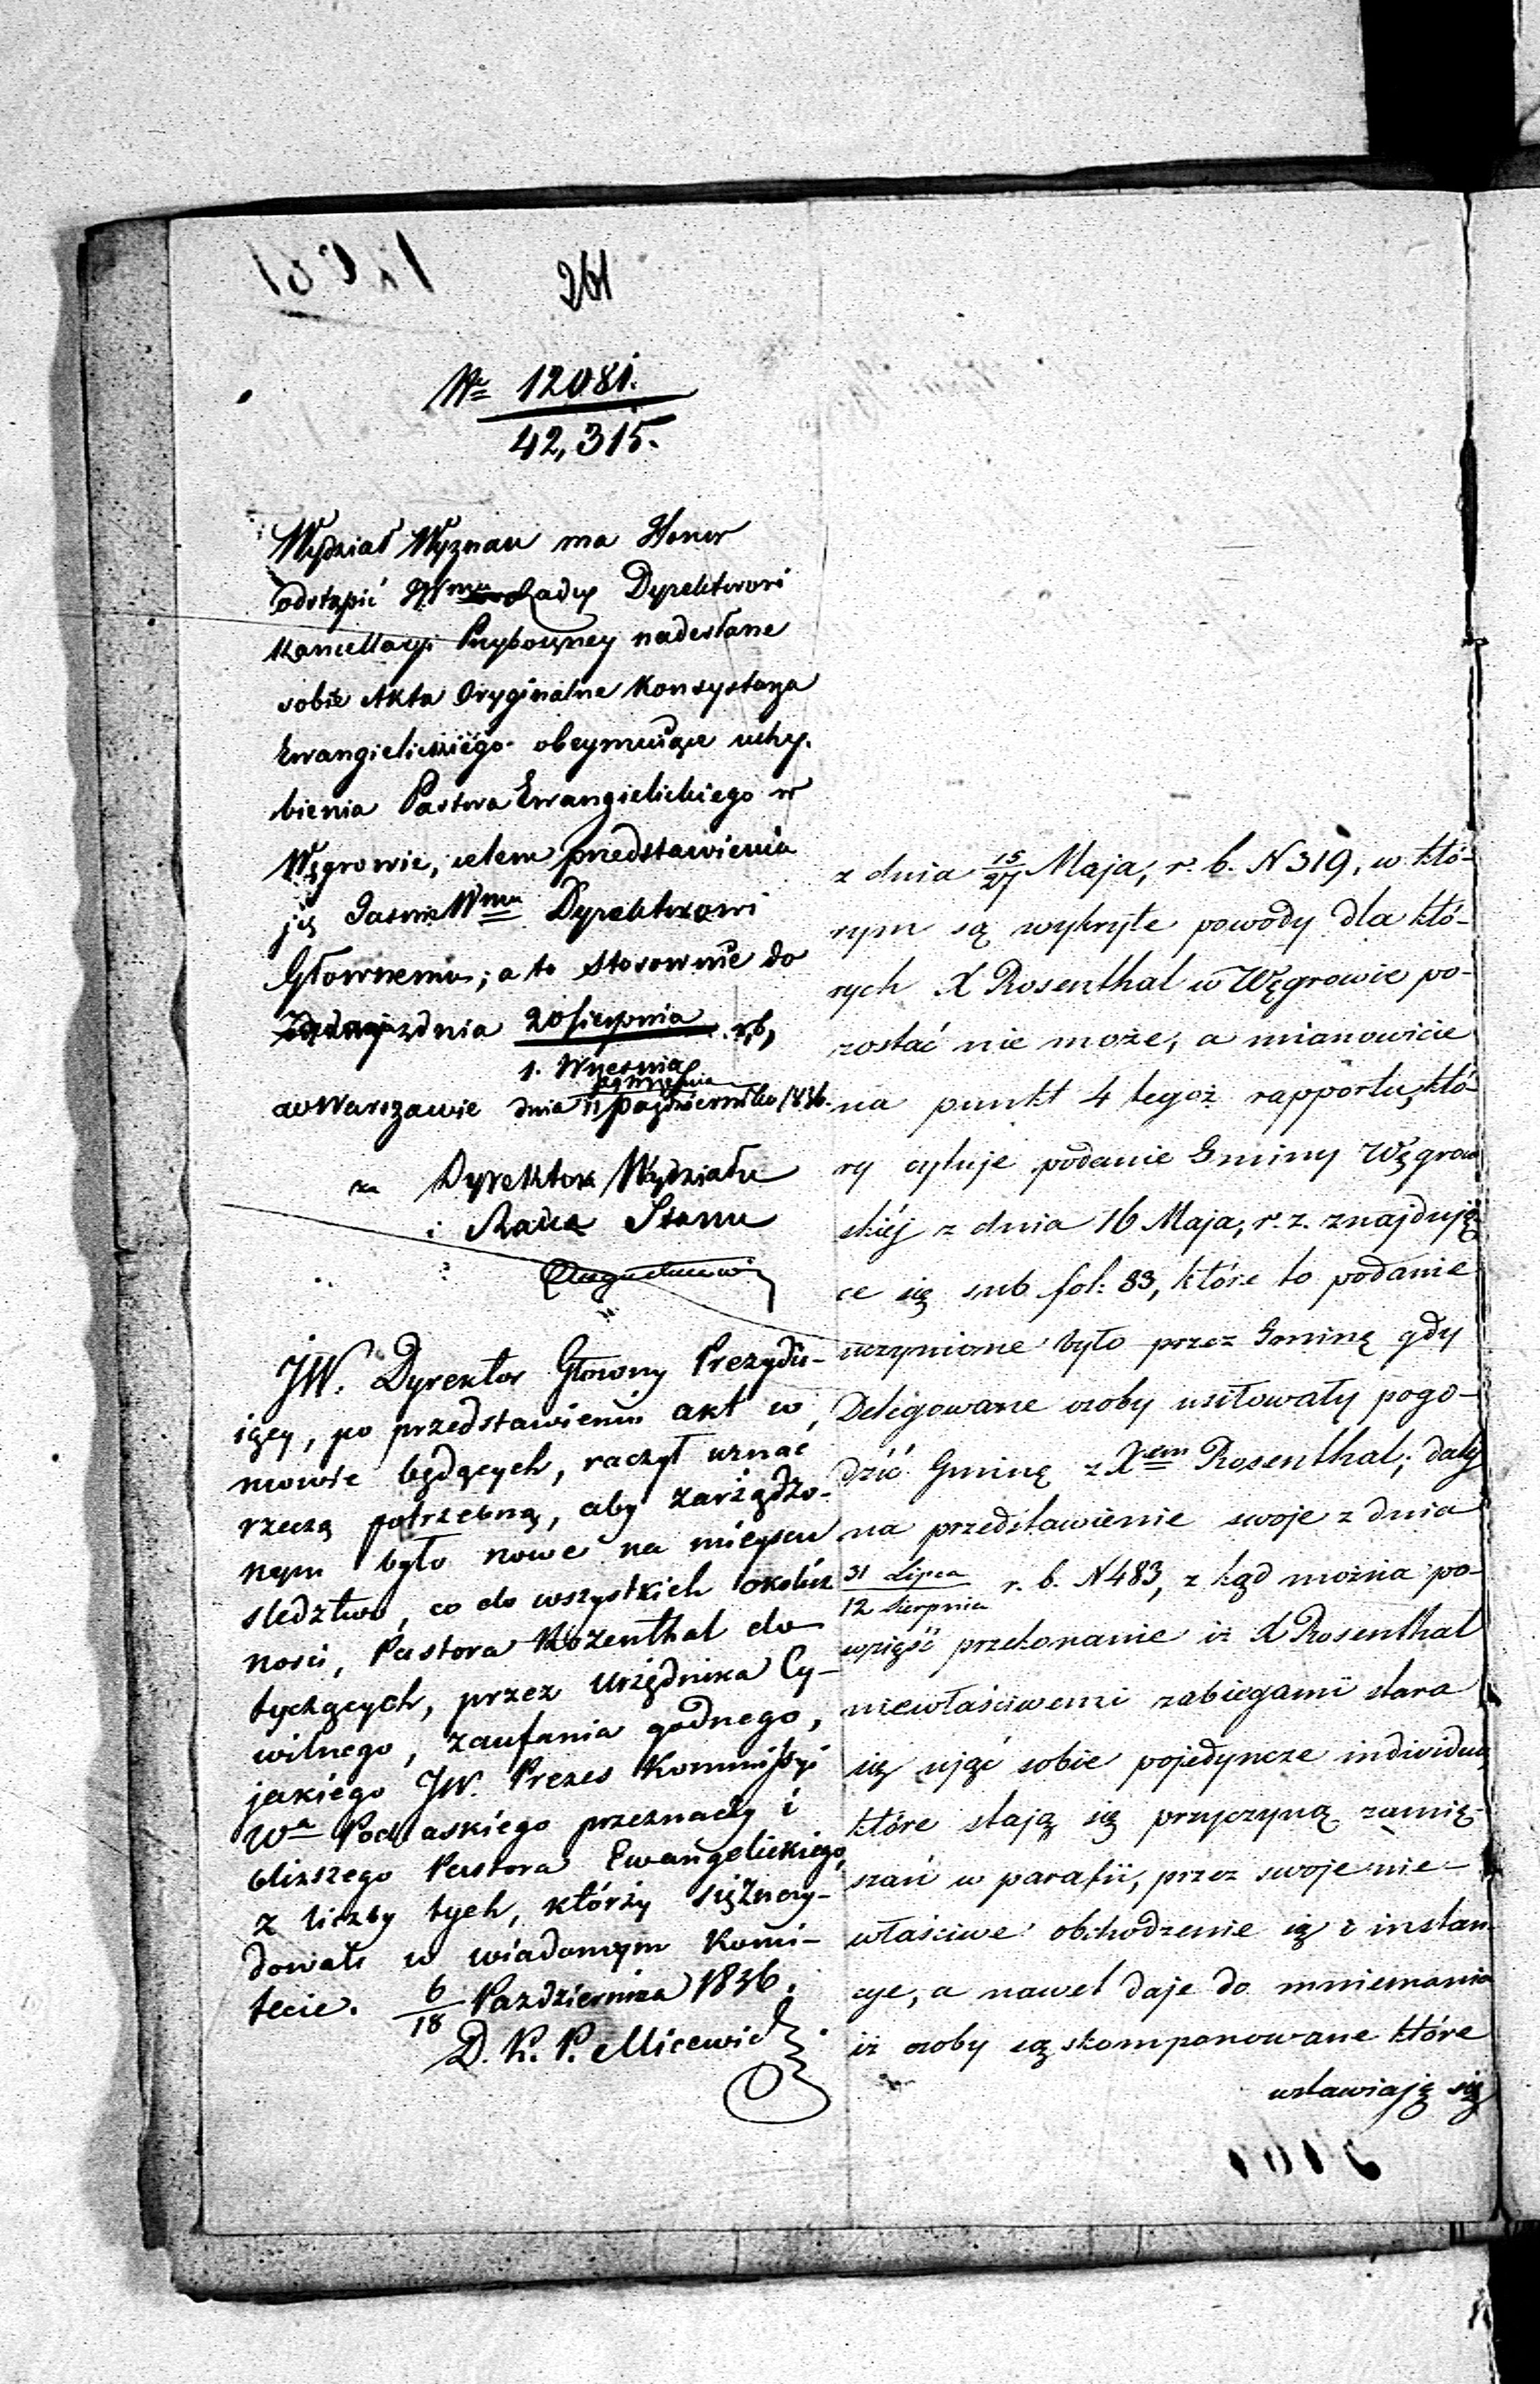 261
No 12081.
42,315.
Wydział Wyznań ma Honor
odstąpić JW Radcy Dyrektorowi
Kancellaryi Przybocznej nadesłane
sobie Akta Oryginalne Konsystorza
Ewangielickiego obeymuiące uchy-
bienia Pastora Ewangielickiego w
Węgrowie, celem przedstawienia
ich Jaśnie Wmu Dyrektorowi
Głównemu; a to stosownie do
z dnia 20 Sierpnia r. b,
1. Września
w Warszawie dnia 11 Października 1836.
za Dyrektora Wydziału
i Radca Stanu
JW. Dyrektor Głowny Prezydu-
iący, po przedstawieniu akt w
mowie będących, raczył uznać
rzeczą potrzebną, aby zarządzo-
nym było nowe na mieyscu
sledztwo, co do wszystkich okolicz
ności, Pastora Rozenthal do-
tyczących, przez Urzędnika Cy-
wilnego, zaufania godnego,
jakiego JW. Prezes Kommissyi
Wa Podlaskiego przeznaczy i
bliższego Pastora Ewangelickiego
z liczby tych, którzy się znay-
dowali w wiadomym Komi-
tecie. 6/18 Października 1836.
D. K. P. Micewicz
z dnia 15/27 Maja, r. b. N 319, w któ-
rym są wykryte powody dla któ-
rych X Rosenthal w Węgrowie po-
zostać nie może, a mianowicie
na punkt 4 tegoż rapportu, któ-
ry cytuje podanie Gminy Węgrow
skiéj z dnia 16 Maja, r. z. znajdują-
ce się sub fol: 83, które to podanie
uczynione było przez Gminę gdy
Delegowane osoby usiłowały pogo-
dzić Gminę z Xem Rosenthal; daléj
na przedstawienie swoje z dnia
31 Lipca
12 Sierpnia r. b. N 483, z kąd można po-
wziąść przekonanie iż X Rosenthal
niewłaściwemi zabiegami stara
się ująć sobie pojedyncze individua,
które stają się przyczyną zamię-
szań w parafii, przez swoje nie-
właściwe obchodzenie się i instan-
cye, a nawet daje do mniemania
iż osoby są skomponowane które
wstawiają się